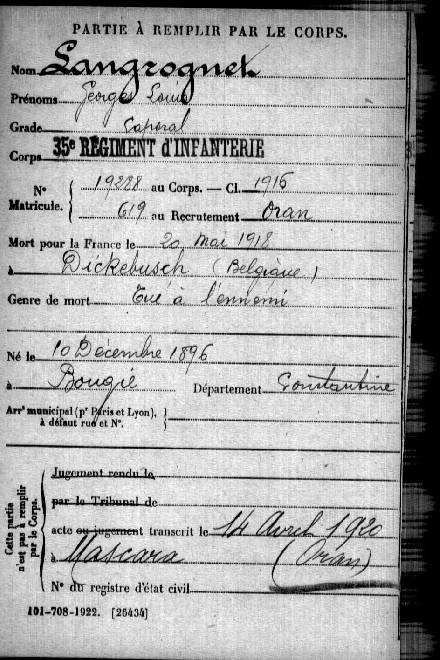 PARTIE À REMPLIR PAR LE CORPS.
Nom Langrognet
Prénoms Georges Louis
Grade Caporal
Corps 35e RÉGIMENT d'INFANTERIE
N° Matricule. { 19288 au Corps. — Cl. 1916
619 au Recrutement Oran
Mort pour la France le 20 mai 1918
à Dickebusch (Belgique)
Genre de mort Tué à l'ennemi
Né le 10 Décembre 1896
à Bougie Département Constantine
Arrt municipal (pr Paris et Lyon),
à défaut rue et N°.
Cette partie n'est pas à remplir par le Corps.
Jugement rendu le
par le Tribunal de
acte ou jugement transcrit le 14 Avril 1920
à Mascara (Oran)
N° du registre d'état civil
101-708-1922. [26434]